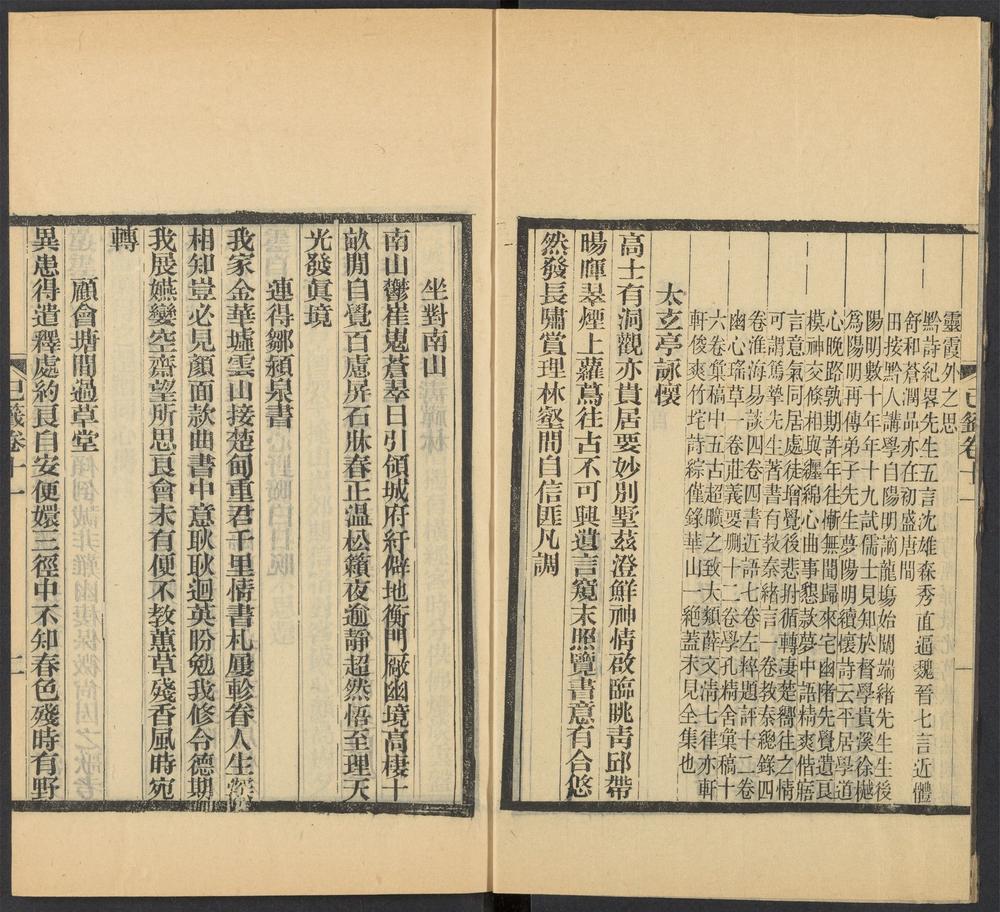 靈霞外之思
黔詩紀畧先生五言沈雄森秀直逼魏晉七言近體
舒和蒼潤品亦在初盛唐間
田接黔人講學自陽明謫龍塲始闢端緒先生生後
陽明數十年年十九試儒士見知於督學貴溪徐樾
爲陽明再傳弟子先生夢陽明續懷詩云平居學道
心晚路孰期許年往慚無聞歸來宅幽陼先覺遺良
模神交倏相與纒綿心曲事懇款夢中語精爽偕寤
言意氣同居處徒增覺後悲拊循轉凄楚嚮往之情
可謂篤摯先生著書有敎泰緒言一卷敎泰總錄四
卷淮海易談四卷四書近語七卷左稡題評十二卷
幽心瑤草一卷莊義要刪十二卷學孔精舍彙稿十
六卷彙稿中五古超曠之致大類薛文淸七律亦軒
軒俊爽竹垞詩綜僅錄華山一絕蓋未見全集也
太玄亭詠懷
高士有洞觀亦貴居要妙別墅茲澄鮮神情啟臨眺靑邱帶
暘暉翠煙上蘿蔦往古不可興遺言窺末照覽書意有合悠
然發長嘯賞理林壑間自信匪凡調
坐對南山
南山鬱崔嵬蒼翠日引領城府紆僻地衡門敞幽境高棲十
畝閒自覺百慮屏石牀春正温松籟夜逾靜超然悟至理天
光發眞境
連得鄒潁泉書
我家金華墟雲山接楚甸重君千里情書札屢軫眷人生
相知豈必見顏面款曲書中意耿耿迴英盼勉我修令德期
我展嬿孌空齋望所思良會未有便不教蕙草殘香風時宛
轉
顧會塘聞過草堂
異患得遣釋處約良自安便嬛三徑中不知春色殘時有野
巳籤卷十一
二